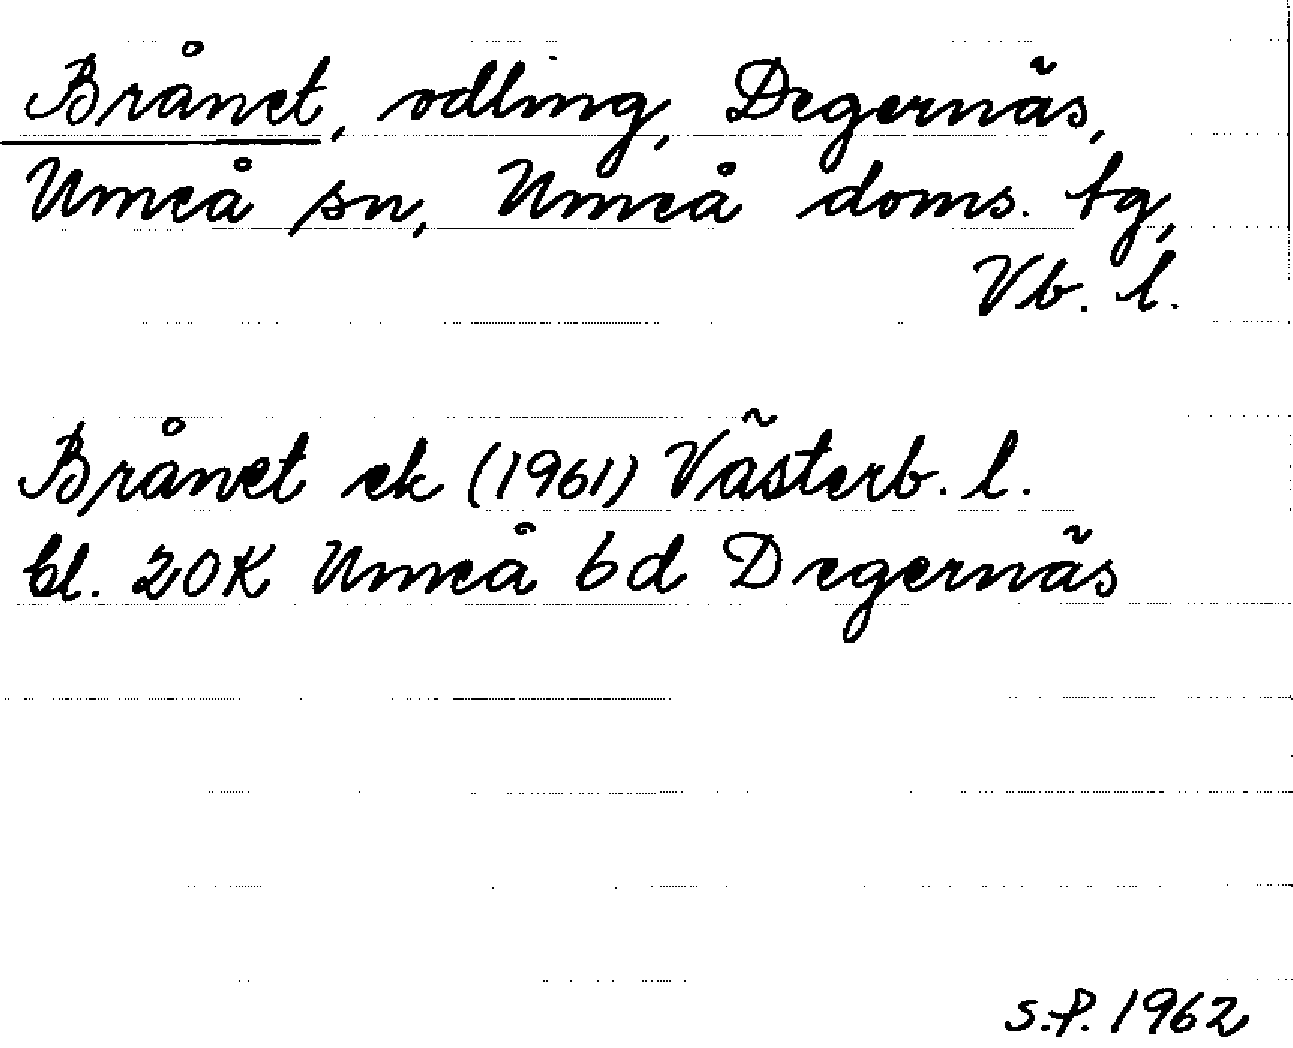 Brånet, odling, Degernäs,
Umeå sn, Umeå doms. tg,
Vb. l.
Brånet ek (1961) Västerb. l.
bl. 20K Umeå 6d Degernäs
S.P. 1962